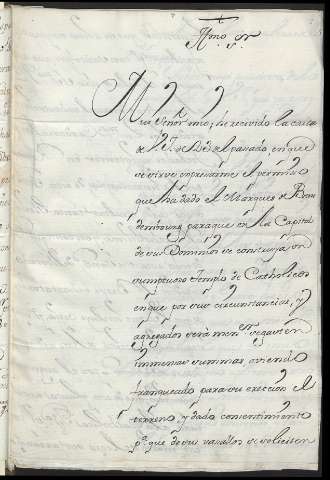 Yllmo. Sr.
Muy Señor mio; he recivido la carta
de V.I. de del pasado, en que
se sirve expresarme el permiso
que ha dado el Marques de Bran
dembourg para que en la Capital
de sus Dominios se construya un
sumptuoso Templo de Catholicos
en que por sus circunstancias, y
agregados será menr. se gasten
immensas summas aviendo
franqueado para su ereccion el
terreno, y dado consentimiento
pa. que de sus vasallos se soliciten